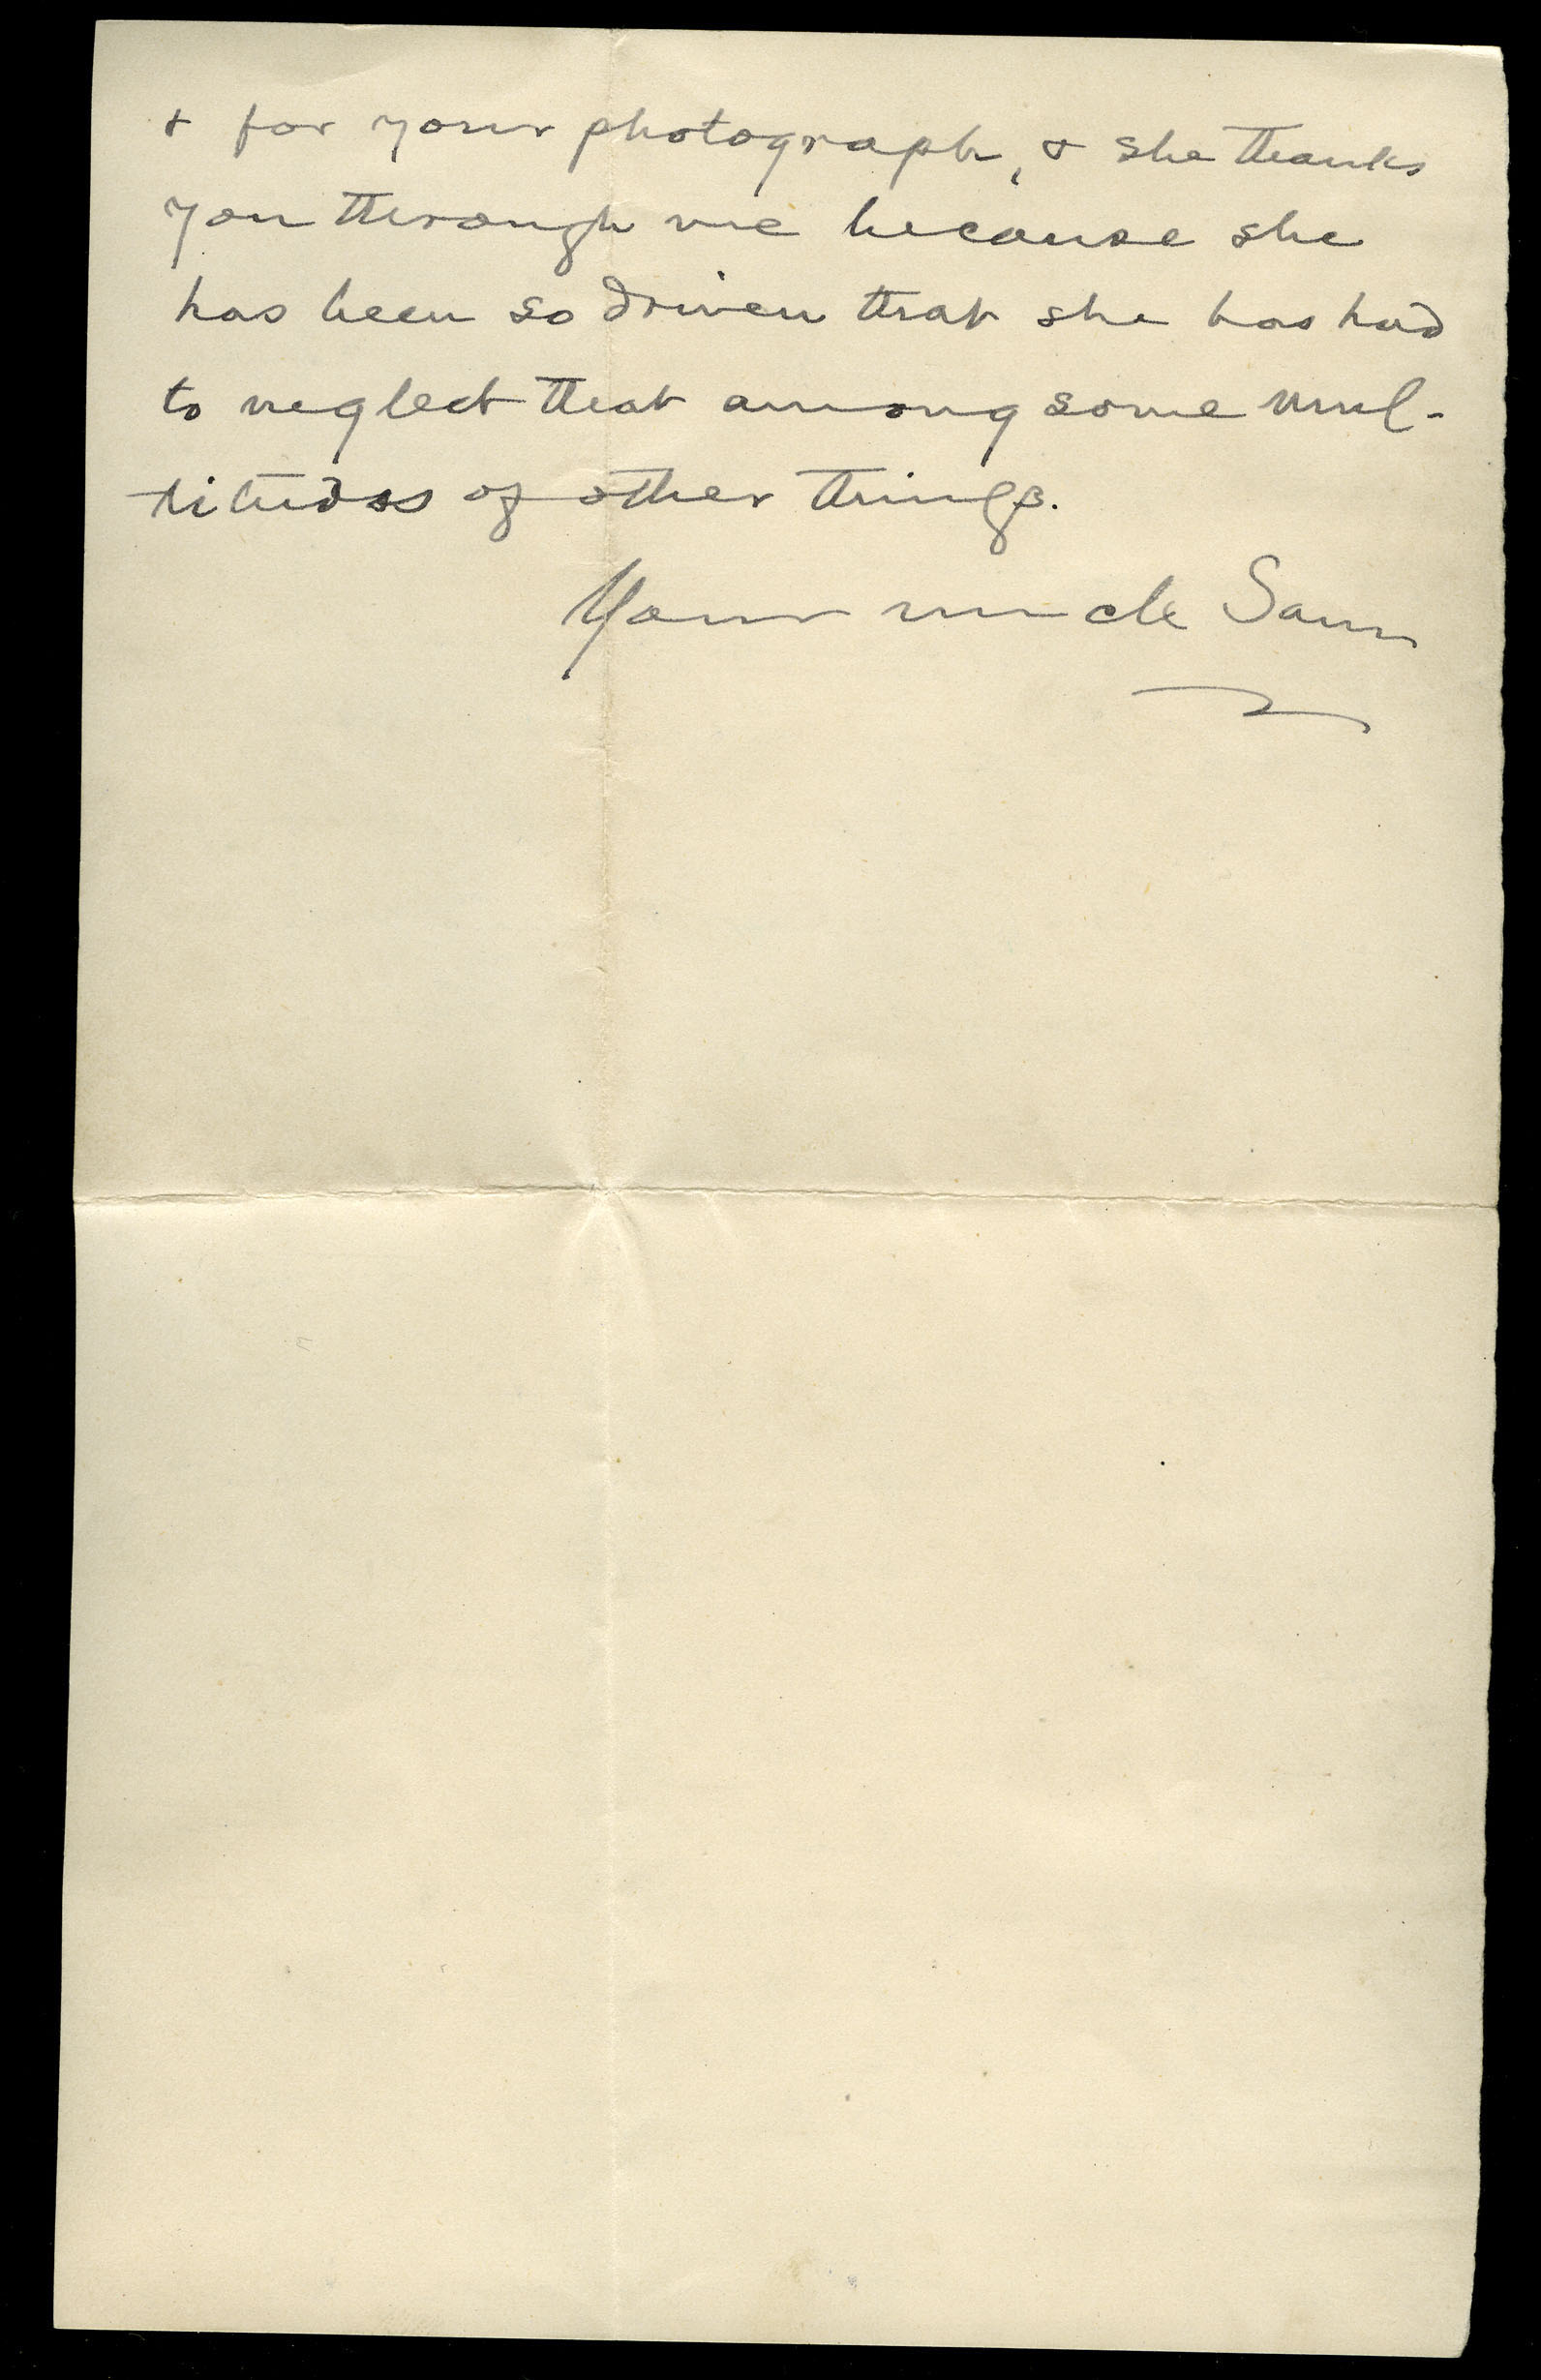 & for your photograph, & she thanks
you through me because she
has been so driven that she has had
to neglect that among some mul-
titudes of other things.
Your uncle Sam